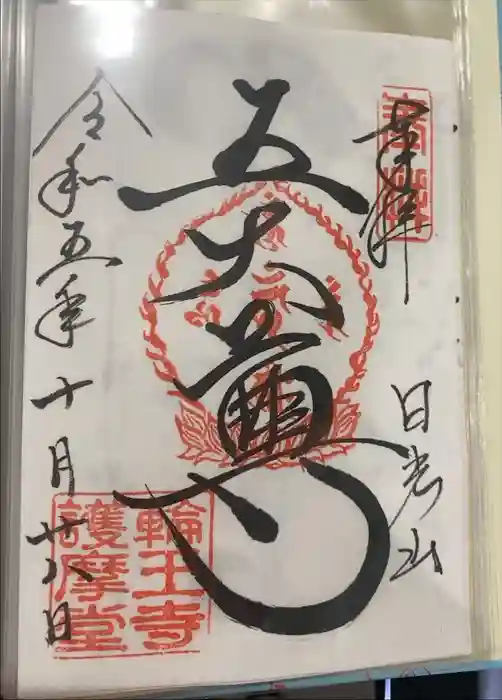 奉拝
日光山
五大尊
令和五年十月廿八日
輪王寺
護摩堂